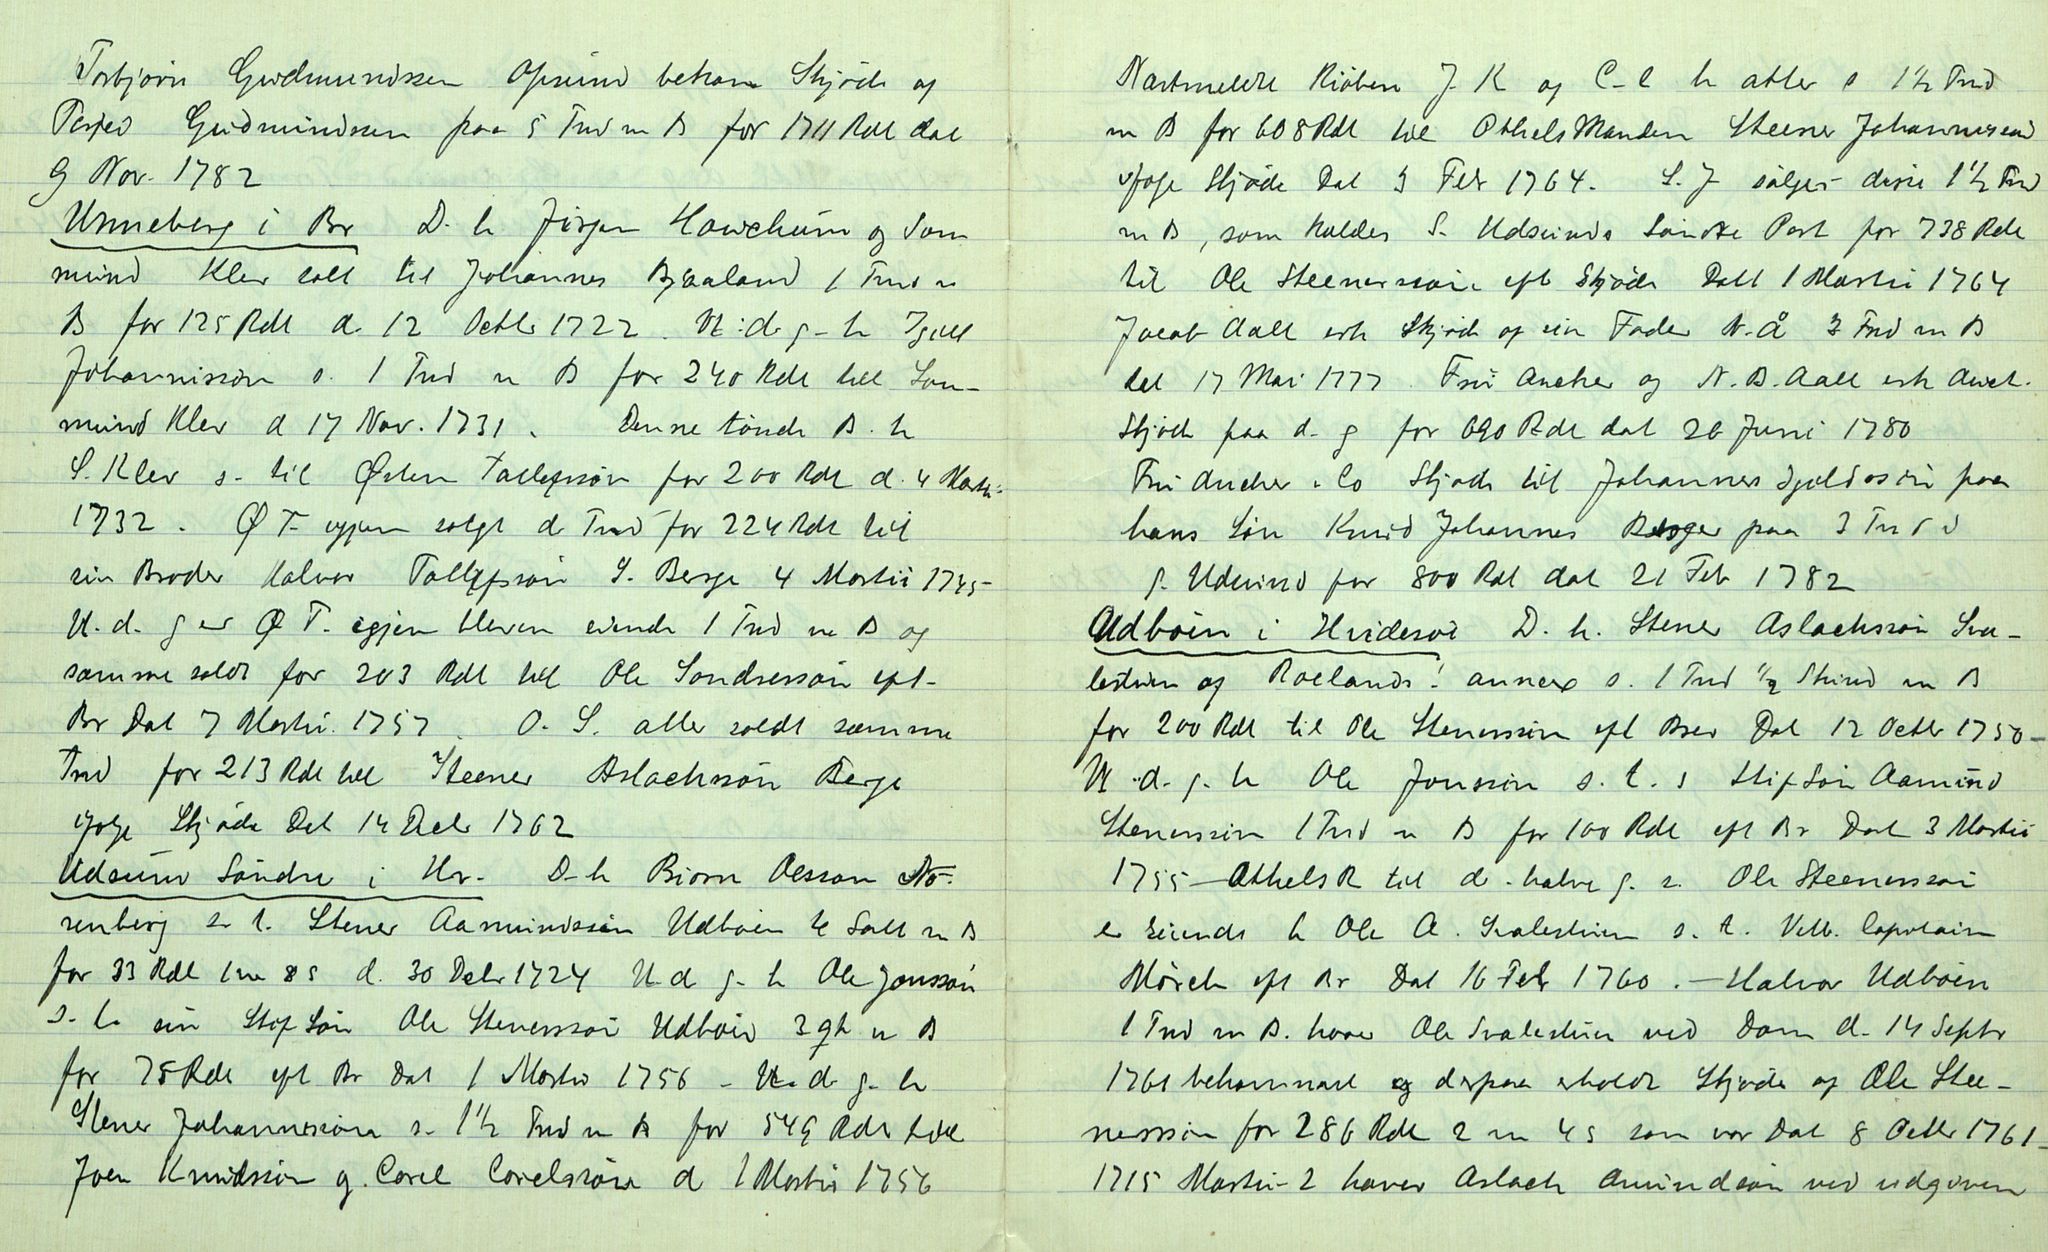 Torbjørn Gudmundssen Opsund bekom Skjøde af
Gudmundssen paa 5 Tnd m B for 1711 Rdl dat
9 Nov. 1782
Unneberg i Br D. h Jørgen Howchum og Son
mund Klev solt til Johannes Bjaaland 1 Tnd m
B for 125 Rdl d. 12 Octbr 1722. U: d g- h Igell
Johannisson s. 1 Tnd m B for 240 Rdl till Son-
mund Klev d 17 Nov. 1731. Denne tønde B. h
S. Klev s- til Østen Tallefsson for 200 Rdl d. 4 Marti-
1732. Ø T- igjen solgt d Tnd for 224 Rdl til
sin Broder Halvor Tallefsson S. Berge 4 Martii 1745-
U. d. g er Ø T. igjen bleven eiende 1 Tnd m B og
samme soldt for 203 Rdl till Ole Sondresson eft-
Br Dat 7 Martii 1757. O. S. atter soldt samme
Tnd for 213 Rdl till Steener Aslachsøn Berge
ifølge Skjøde Dat 14 Decbr 1762
Udsund Søndre i Hv- D-h Biørn Olsson No-
renberg s- t. Stener Aamundssøn Udbøen ½ Sold m B
for 33 Rdl 1 m 8 s d. 30 Decbr 1724 U. d g- h Ole Jonssøn
s- t. sin Stif Søn Ole Stenerssøn Udbøen 3 qt m B
for 75 Rdl eft Br Dat 1 Martii 1756 - U. d g- h
Stener Johannesson s- 1½ Tnd m B for 549 Rdl till
Joen Knudssøn og Carel Carelssøn d 1 Martii 1756
Nærtmeldte Kiøbere J K og C-C h atter s 1½ Tnd
m B for 608 Rdl til OthelsManden Steener Johannessen
ifølge Skjøde Dat 3 Febr 1764. S. J sælger disse 1½ Tnd
m B, som kaldes S. Udsunds Søndre Part for 738 Rdl
til Ole Steenerssøn eft Skjøde Datt 1 Martii 1764
Jacob Aall erh Skjøde af sin Fader N. Å 3 Tnd m B
dat 17 Mai 1777. Fru Ancher og N. B. Aall erh Auct.
Skjøde paa d. g for 690 Rdl dat 26 Juni 1780
Fru Ancher & Co Skjøde til Johannes Igeldssøn paa
hans Søn Knud Johannes Berge paa 3 Tnd i
g. Udsund for 800 Rdl dat 21 Feb 1782
Udbøen i Hvidesøe D. h. Stener Aslachssøn Sva-
lestuen og Roelands! annex s. 1 Tnd ½ Skind m B
for 200 Rdl til Ole Stenerssøn eft Brev Dat 12 Octbr 1750-
U. d. g. h Ole Jonssøn s. t. s Stif Søn Aamund
Stenerssøn 1 Tnd m B for 100 Rdl eft Br Dat 3 Martii
1755 - Othels R til d. halve g. s. Ole Steenerssøn
er Eiende h Ole A. Svalestuen s. t. Velb. Capitain
Mørch eft Br Dat 16 Febr 1760. - Halvor Udbøen
1 Tnd m B. haver Ole Svalestuen ved Dom d. 14 Septbr
1761 bekommet og derpaa erholdt Skjøde af Ole Stee-
nerssøn for 286 Rdl 2 m 4 s som var Dat 8 Octbr 1761-
1715 Martii-2 haver Aslach Amundsøn ved udgiven